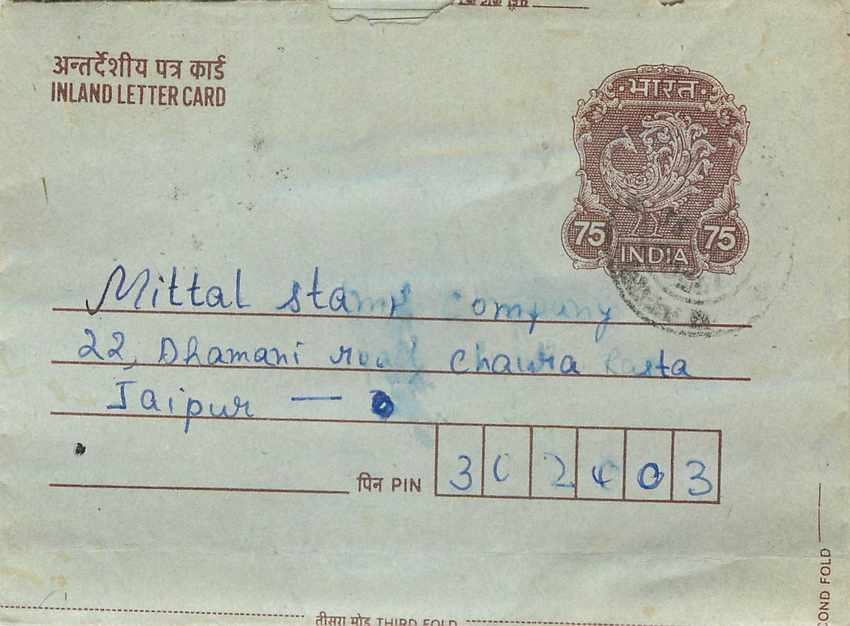 अन्तर्देशीय पत्र कार्ड
INLAND LETTER CARD
भारत
75 75
INDIA
Mittal Stamp Company
22, Dhamani road Chaura Rasta
Jaipur —
पिन PIN 302403
तीसरा मोड़ THIRD FOLD
OND FOLD